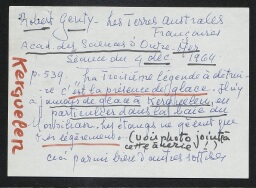 Robert Genty - Les Terres Australes
Françaises
Acad. des Sciences d'Outre-Mer
Séance du 4 déc 1964
Kerguelen
p. 539. "La troisième légende à détrui-
re c'est la présence de glace. Il n'y
a jamais de glace à Kerguelen, en
particulier dans la baie du
Morbihan. Les étangs ne gèlent que
très légèrement" (voir photo jointe à
cette ânerie)
ceci parmi bien d'autres sottises